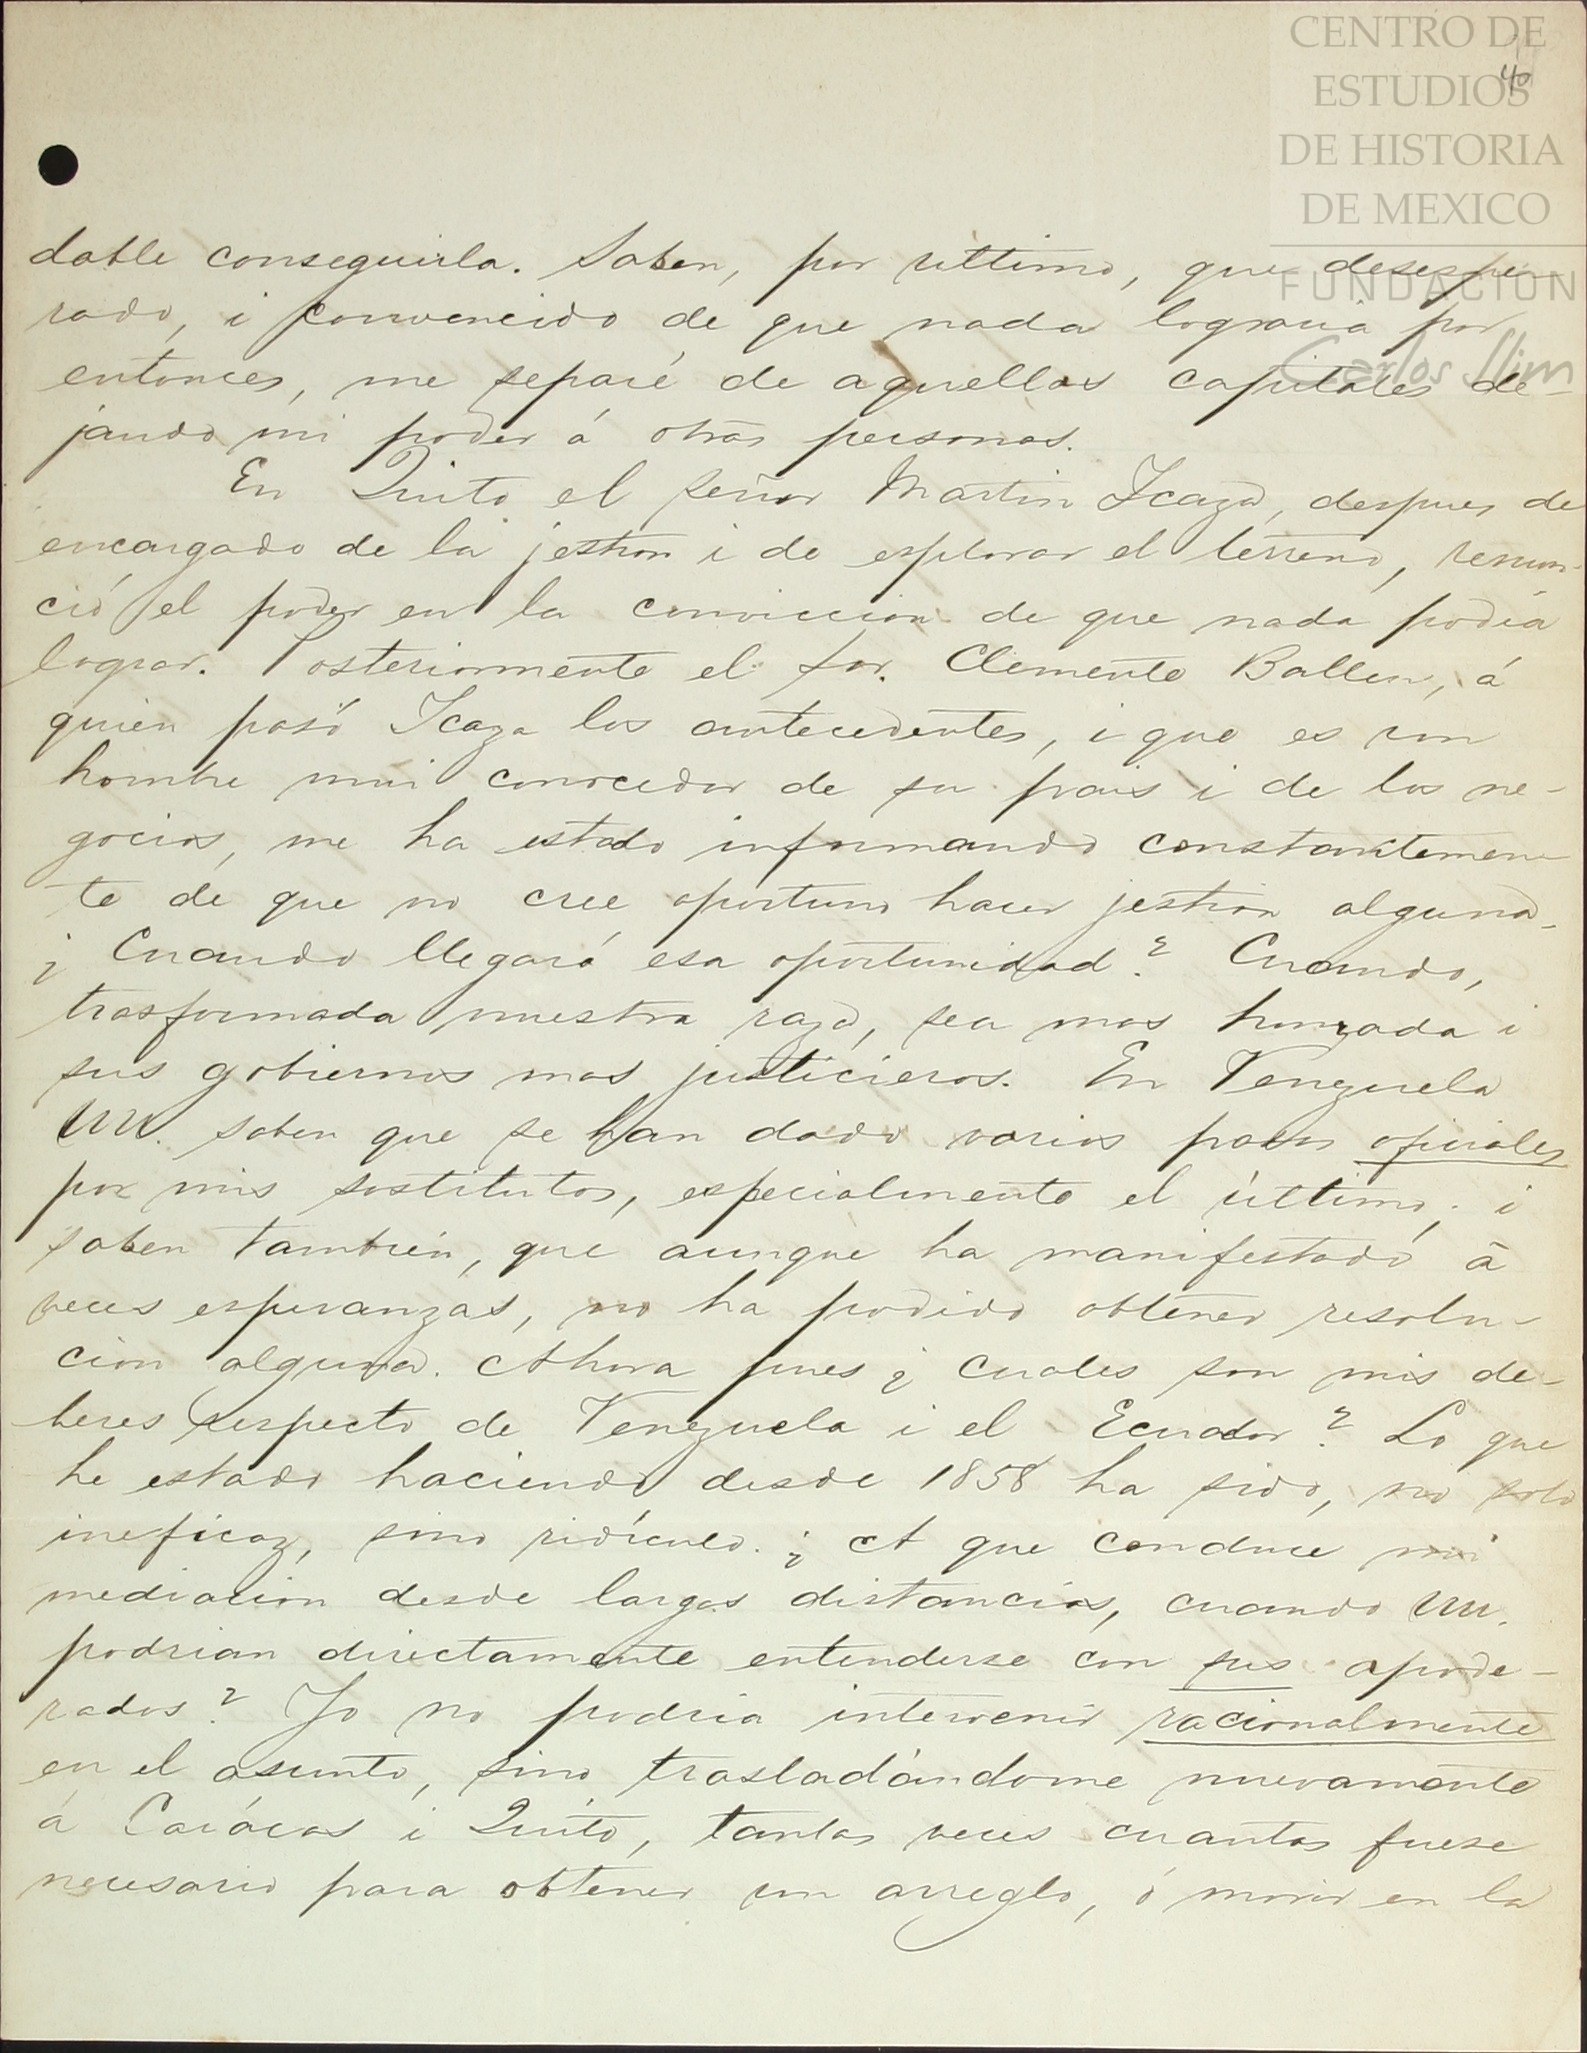 CENTRO DE
ESTUDIOS
DE HISTORIA
DE MEXICO
FUNDACION
Carlos Slim
40
dable conseguirla. Saben, por último, que desespe-
rado, i convencido de que nada lograria por
entonces, me separé de aquellas capitales de-
jando mi poder á otras personas.
En Quito el señor Martin Icaza, despues de
encargado de la jestion i de esplorar el terreno, renun-
ció el poder en la conviccion de que nada podia
lograr. Posteriormente el Sor. Clemente Ballen, á
quien pasó Icaza los antecedentes, i que es un
hombre mui conocedor de su pais i de los ne-
gocios, me ha estado informando constantemen-
te de que no cree oportuno hacer jestion alguna.
¿Cuando llegará esa oportunidad? Cuando,
trasformada nuestra raza, sea mas honrada i
sus gobiernos mas justicieros. En Venezuela
UU. saben que se han dado varios pasos oficiales
por mis sostitutos, especialmente el último; i
saben tambien, que aunque ha manifestado á
veces esperanzas, no ha podido obtener resolu-
cion alguna. Ahora pues ¿cuales son mis de-
beres respecto de Venezuela i el Ecuador? Lo que
he estado haciendo desde 1858 ha sido, no solo
ineficaz, sino ridículo. ¿A que conduce mi
mediacion desde largas distancias, cuando UU.
podrian directamente entenderse con sus apode-
rados? Yo no podria intervenir racionalmente
en el asunto, sino trasladándome nuevamente
á Carácas i Quito, tantas veces cuantas fuese
necesario para obtener un arreglo, ó morir en la